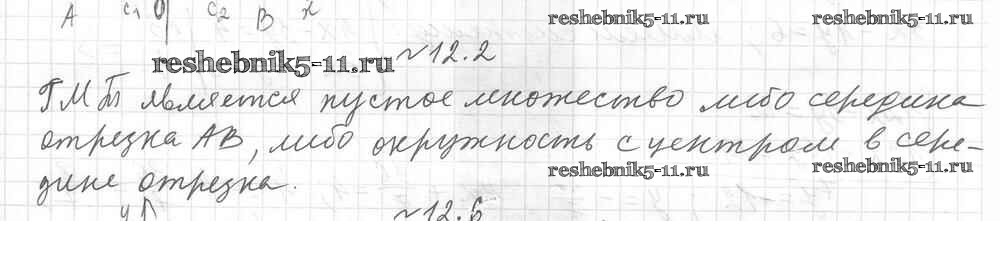 A C₁ 0 C₂ B x
reshebnik5-11.ru reshebnik5-11.ru
reshebnik5-11.ru №12.2
ГМТ является пустое множество либо середина
отрезка АВ, либо окружность с центром в сере-
дине отрезка.
reshebnik5-11.ru reshebnik5-11.ru
y №12.6